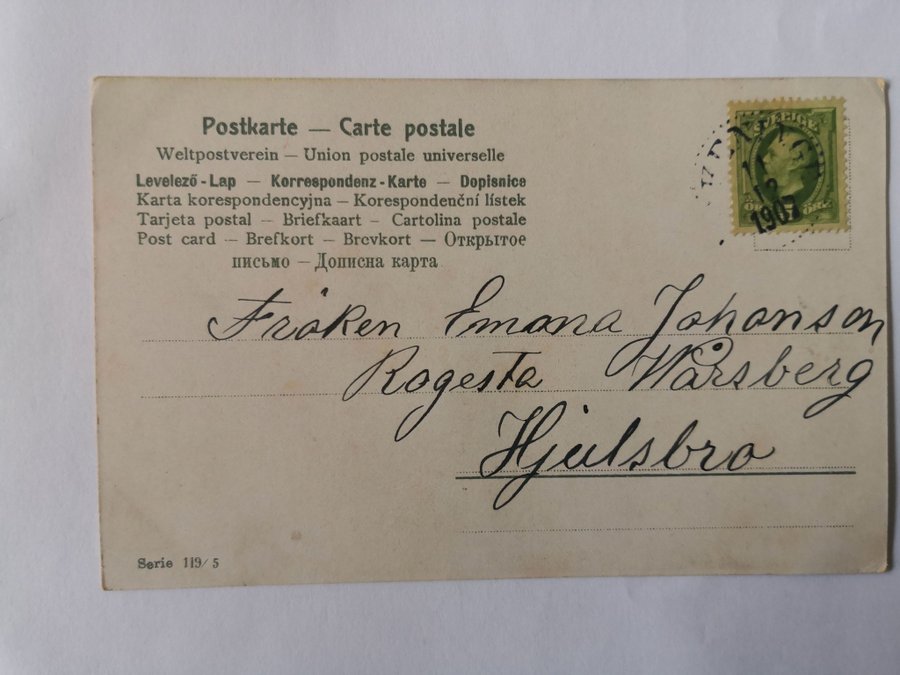 Postkarte — Carte postale
Weltpostverein — Union postale universelle
Levelező-Lap — Korrespondenz-Karte — Dopisnice
Karta korespondencyjna — Korespondenční lístek
Tarjeta postal — Briefkaart — Cartolina postale
Post card — Brefkort — Brevkort — Открытое
письмо — Дописна карта
SVERIGE
1907
Fröken Emma Johanson
Rogesta Wårsberg
Hjulsbro
Serie 119/5